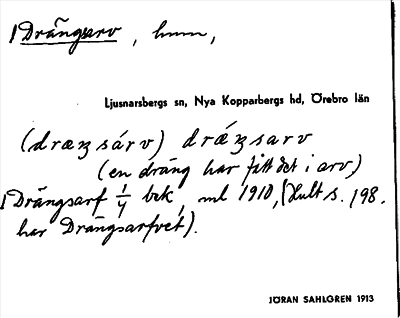 1 Drängsarv, hmn,
Ljusnarsbergs sn, Nya Kopparbergs hd, Örebro län
(dræŋsárv) drǽŋsarv
(en dräng har fått det i arv)
1 Drängsarf 1/4 bek, ml 1910, (Hult s. 198.
har Drängsarfvet).
JÖRAN SAHLGREN 1913